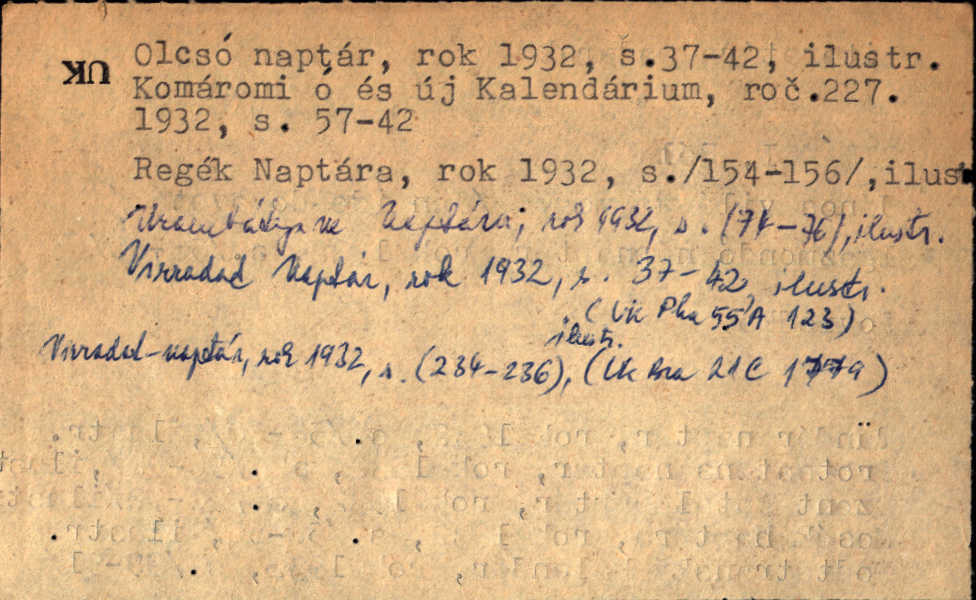 UK
Olcsó naptár, rok 1932, s.37-42, ilustr.
Komáromi ó és új Kalendárium, roč.227.
1932, s. 57-42
Regék Naptára, rok 1932, s./154-156/,ilust
Naptára, rok 1932, s. (74-76), ilustr.
Virradat Naptár, rok 1932, s. 37-42, ilustr.
(Uk Pka 55 A 123)
ilustr.
Virradat-naptár, rok 1932, s. (234-236), (Uk Bra 21C 1779)